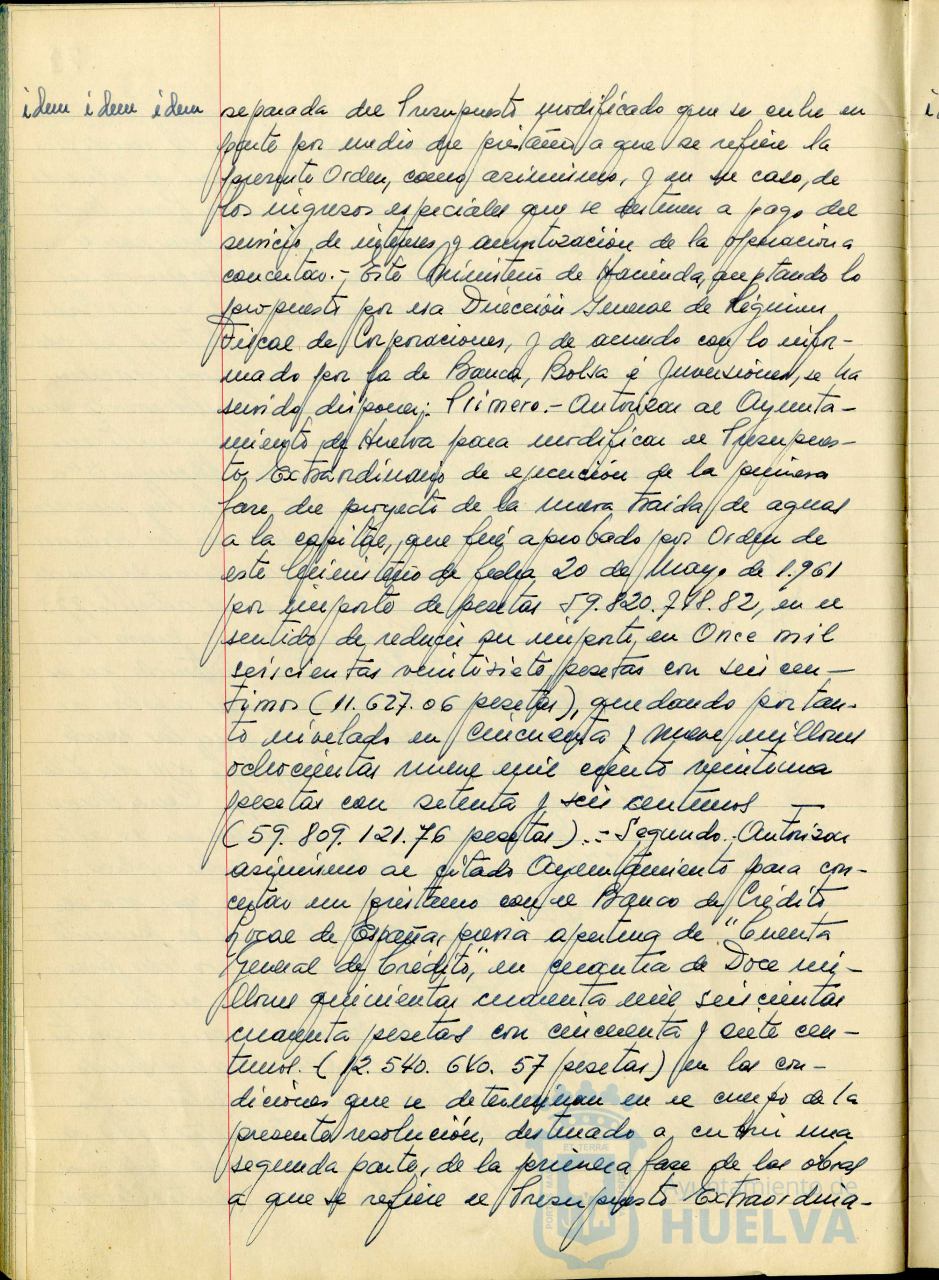 idem idem idem
separada del Presupuesto modificado que se cubre en
parte por medio del préstamo a que se refiere la
presente Orden, como asimismo, y en su caso, de
los ingresos especiales que se destinen a pago del
servicio de intereses y amortización de la operación a
concertar.- Este Ministerio de Hacienda, aceptando lo
propuesto por esa Dirección General de Régimen
Fiscal de Corporaciones, y de acuerdo con lo infor-
mado por la de Banca, Bolsa e Inversiones, se ha
servido disponer: Primero.- Autorizar al Ayunta-
miento de Huelva para modificar el Presupues-
to Extraordinario de ejecución de la primera
fase del proyecto de la nueva traída de aguas
a la capital, que fué aprobado por Orden de
este Ministerio de fecha 20 de Mayo de 1.961
por importe de pesetas 59.820.748.82, en el
sentido de reducir su importe en Once mil
seiscientas veintisiete pesetas con seis cen-
timos (11.627.06 pesetas), quedando por tan-
to nivelado en Cincuenta y nueve millones
ochocientas nueve mil ciento veintiuna
pesetas con setenta y seis centimos —
(59.809.121.76 pesetas).- Segundo.- Autorizar
asimismo al citado Ayuntamiento para con-
certar un préstamo con el Banco de Crédito
Local de España, previa apertura de "Cuenta
General de Crédito", en cuantia de Doce mi-
llones quinientas cuarenta mil seiscientas
cuarenta pesetas con cincuenta y siete cen-
timos. (12.540.640.57 pesetas) en las con-
diciones que se determinan en el cuerpo de la
presente resolución, destinado a cubrir una
segunda parte, de la primera fase de las obras
a que se refiere el Presupuesto Extraordina-
Ayuntamiento de
HUELVA